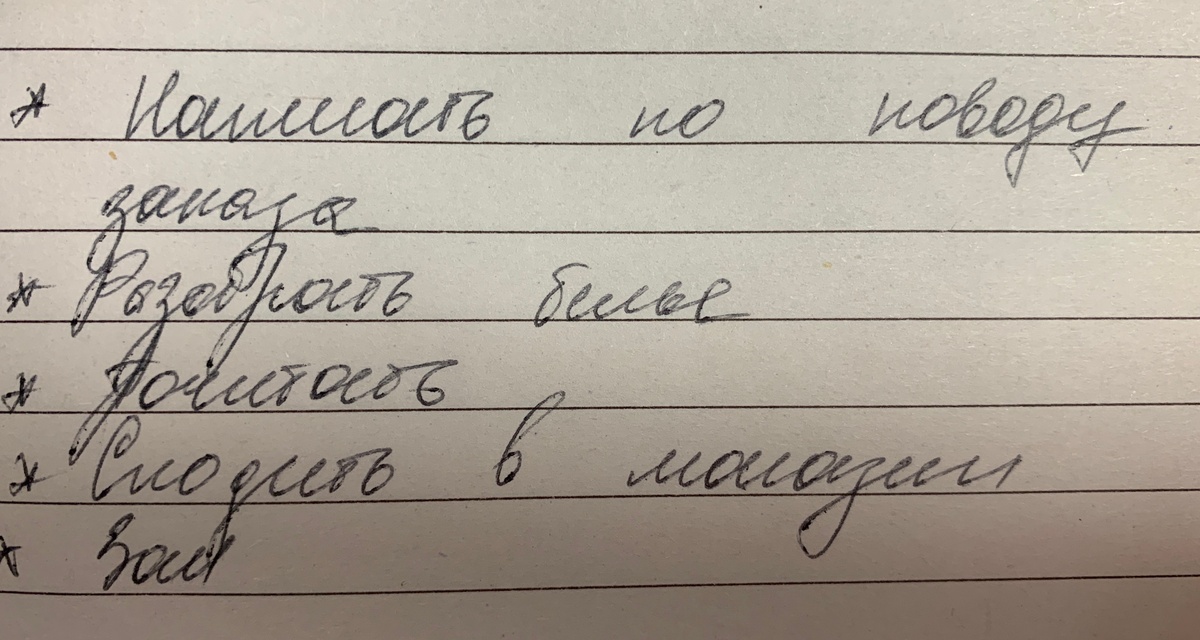 * Написать по поводу
заказа
* Разобрать белье
* Почитать
* Сходить в магазин
* Зал